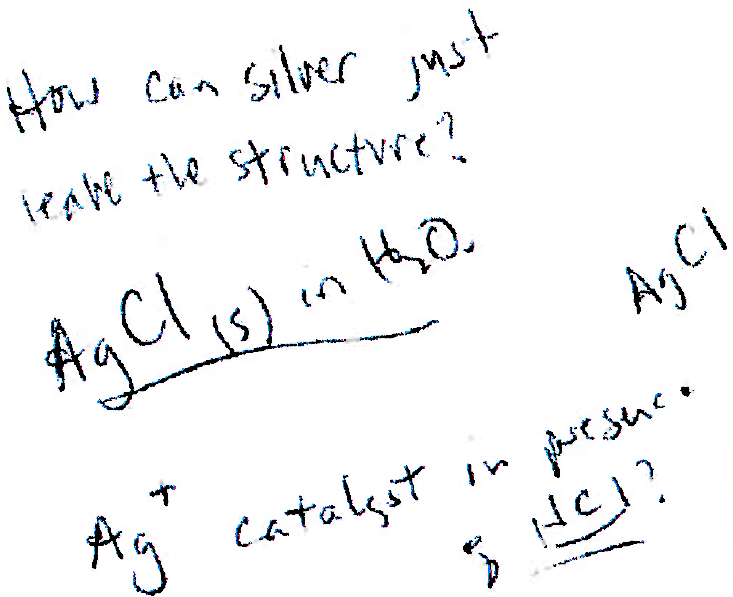 How can silver just
leave the structure?
AgCl (s) in H2O
AgCl
Ag+ catalyst in presence
of HCl?